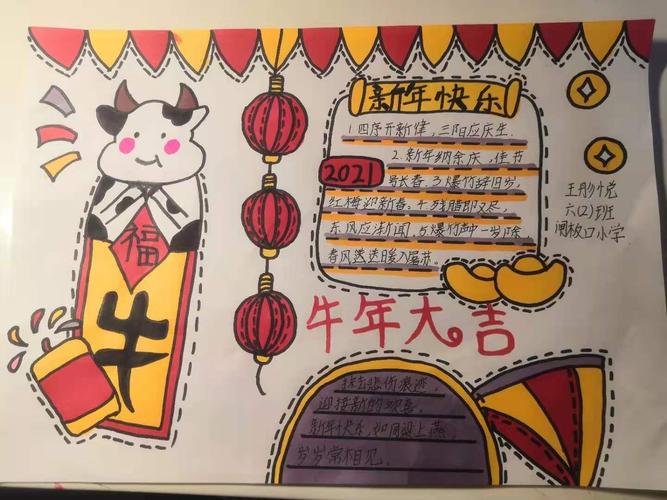 新年快乐
1.四序开新律,三阳应庆生.
2.新年纳余庆,佳节
2021
号长春.3.爆竹辞旧岁,
红梅迎新春.4.残腊即又尽,
东风应渐闻.5爆竹声中一岁除,
春风送送暖入屠苏
六(2)班
口小学
福
牛
牛年大吉
悲伤痕迹,
迎接新的欢喜,
新年快乐,如同梁上燕,
岁岁常相见.